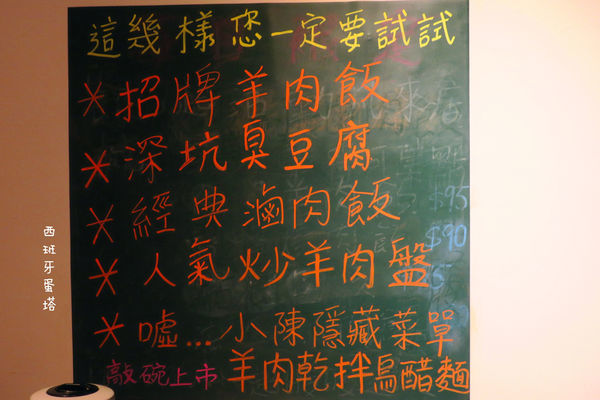 這幾樣您一定要試試
*招牌羊肉飯
*深坑臭豆腐
*經典滷肉飯
*人氣炒羊肉盤
*噓...小陳隱藏菜單
敲碗上市 羊肉乾拌烏醋麵
$95
$90
西班牙蛋塔